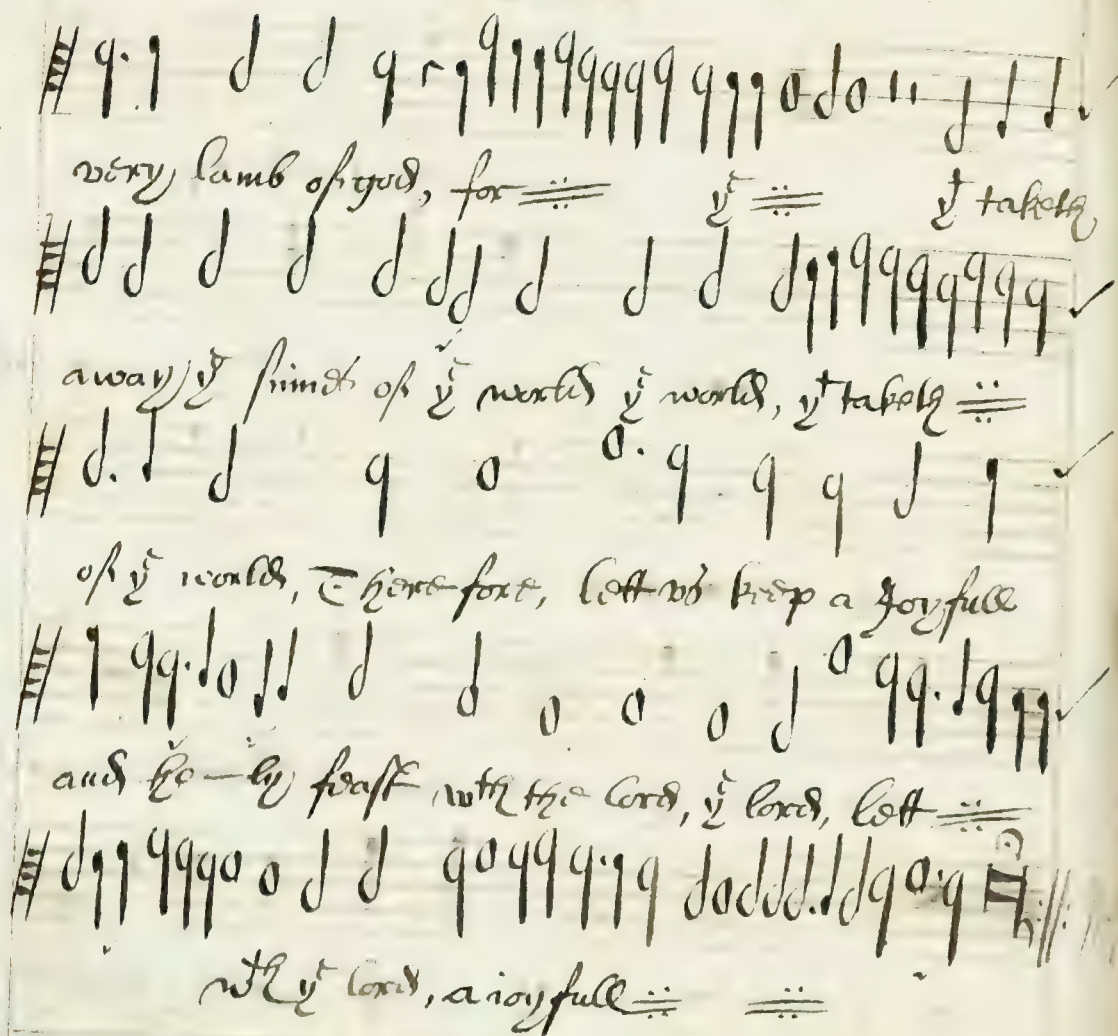 very lamb of god, for yᵉ yᵗ taketh
away yᵉ sinnes of yᵉ world yᵉ world, yᵗ taketh
of yᵉ world, Therefore, lett us keep a Joyfull
and ho–ly feast wᵗʰ the lord, yᵉ lord, lett
wᵗʰ yᵉ lord, a ioyfull